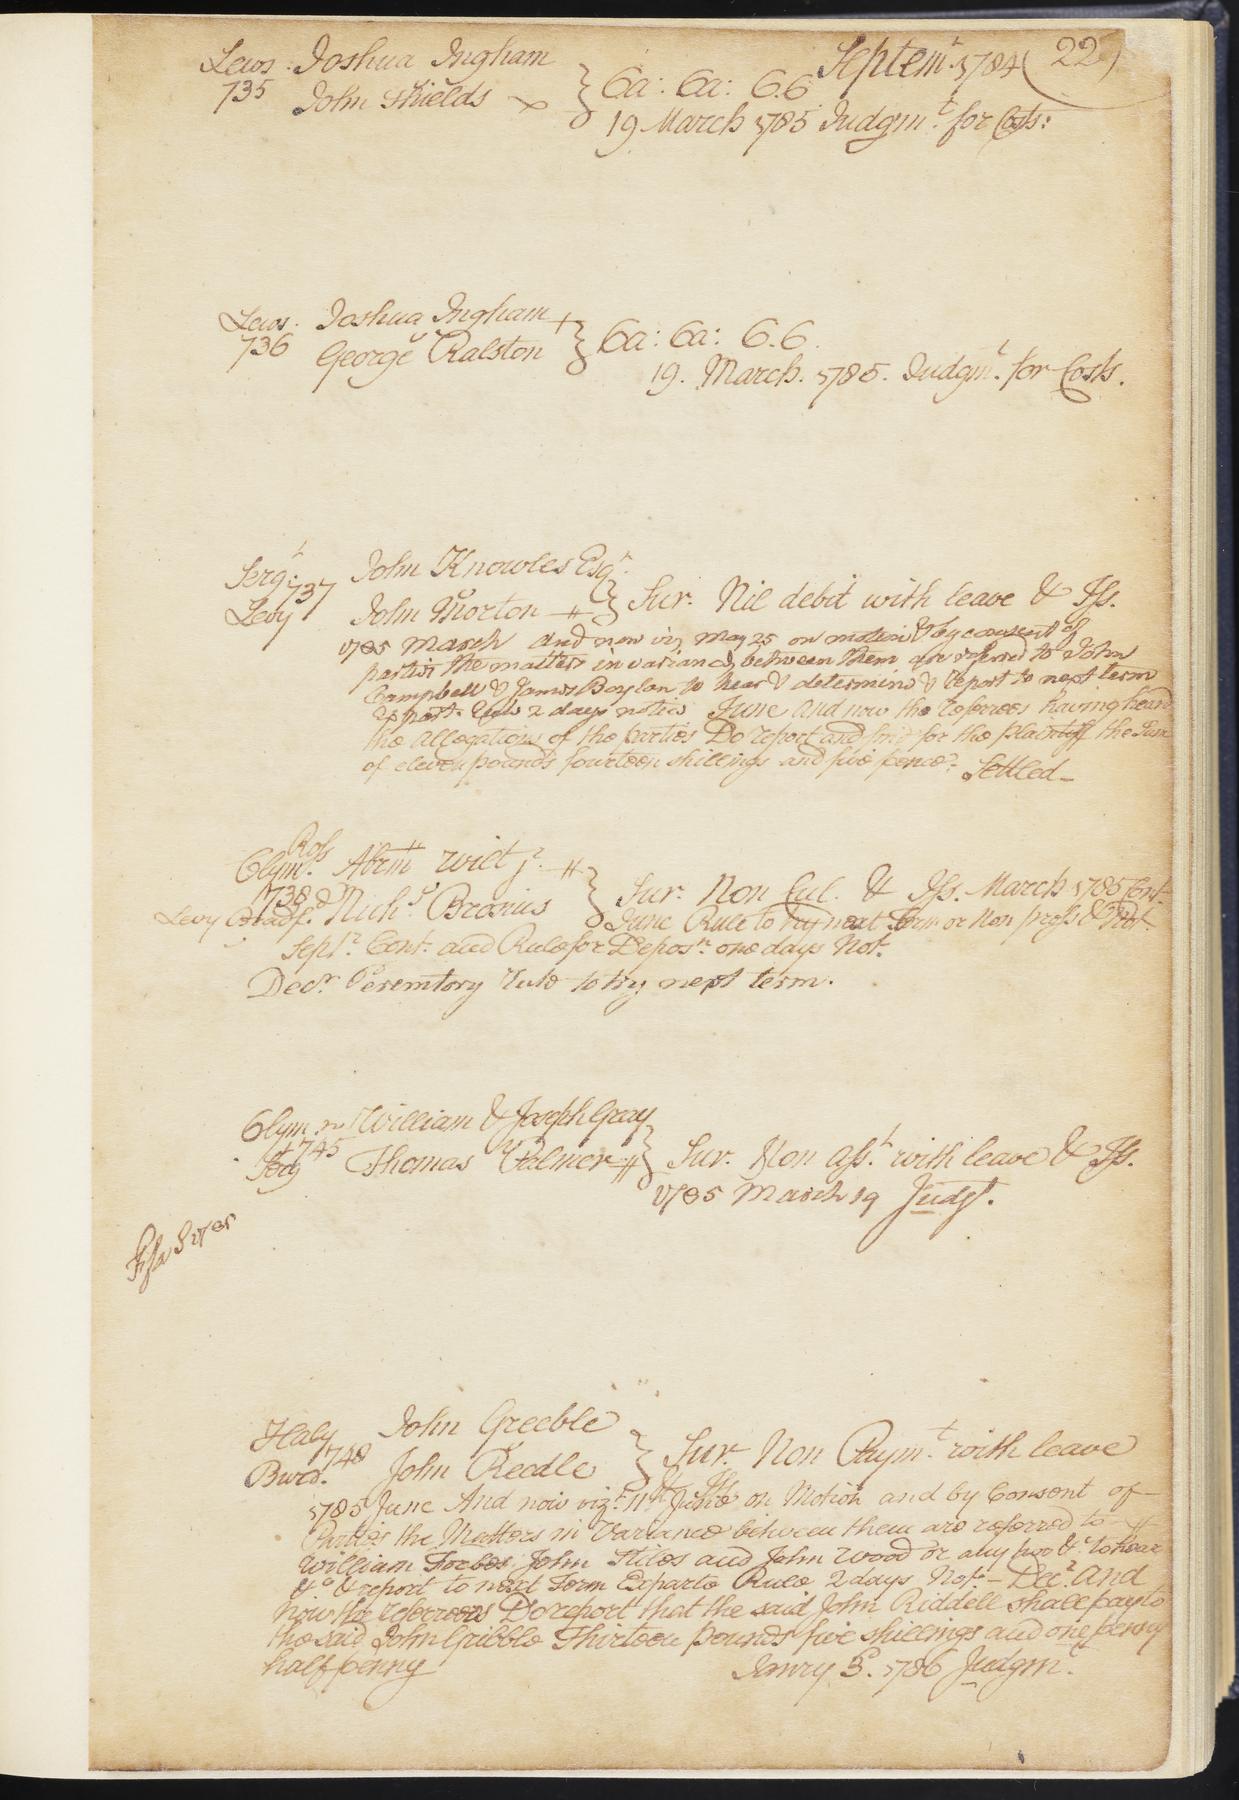 Septemr. 1784 (22)
Lews. Joshua Ingham
735 John Shields × } Ca: Ca: C.C.
19 March 1785 Judgmt. for Costs:
Lews. Joshua Ingham +
736 George Ralston } Ca: Ca: C.C.
19. March. 1785. Judgmt. for Costs.
Sergt. John Knowles Esqr.
737
Levy John Morton } Sur. Nil debit with leave & Iss.
1785 March and now viz May 25 on motion & by consent of
parties the matters in variance between them are referred to John
Campbell & James Boylan to hear & determine & report to next term
Exparte Rule 2 days notice June and now the referrees having heard
the allegations of the parties Do report and find for the plaintiff the Sum
of eleven pounds fourteen shillings and five pence. Settled
Ross
Clymr. Abrm Wilt jr.
738
Levy Bradf. Nichs. Brosius } Sur. Non Cul. & Iss. March 1785 Cont.
June Rule to try next Term or Non pross & Not.
Sept. Cont. and Rule for Deposn. one days Not.
Decr. Peremtory rule to try next term.
Clymr. William & Joseph Gray
745
Thomas Palmer } Sur. Non Asst. with leave & Iss.
1785 March 19 Judgt.
Fifa S 1785
Haly John Greeble
748
Bwrd. John Reedle } Sur. Non Paymt. with leave
& Iss.
1785 June And now vizt. 11th June on Motion and by Consent of
Parties the Matters in Variance between them are referred to
William Forbes John Stiles and John Wood or any two &c to hear
&c & report to next Term Exparte Rule 2 days Not. Decr. And
now the referrees Do report that the said John Riddell shall pay to
the said John Gribble Thirteen pounds five shillings and one penny
half penny Janry 3. 1786 Judgmt.